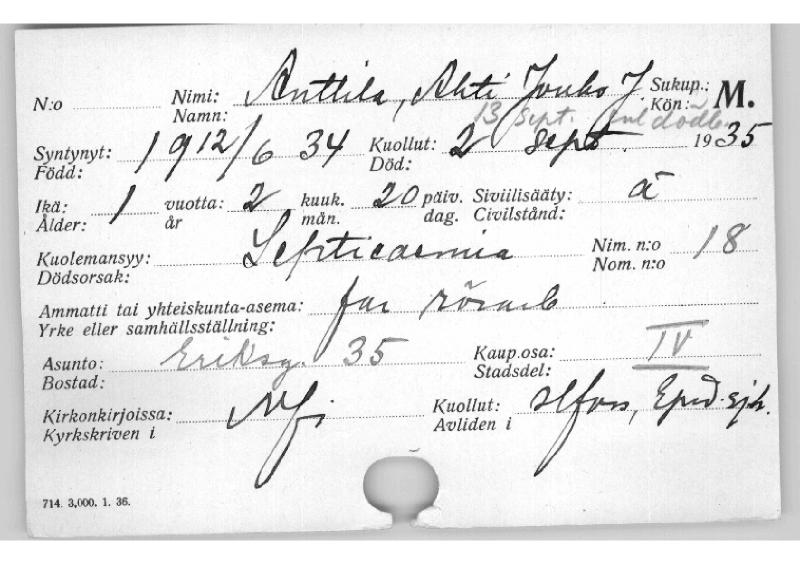 N:o Nimi: Anttila, Ahti Jouko J Sukup.: M.
Namn: Kön:
13 sept. enl dödb.
Syntynyt: 1912/6 34 Kuollut: 2 sept. 1935
Född: Död:
Ikä: 1 vuotta: 2 kuuk. 20 päiv. Siviilisääty: a
Ålder: år mån. dag. Civilstånd:
Kuolemansyy: Septicaemia Nim. n:o 18
Dödsorsak: Nom. n:o
Ammatti tai yhteiskunta-asema: far rörarb
Yrke eller samhällsställning:
Asunto: Eriksg. 35 Kaup.osa: IV
Bostad: Stadsdel:
Kirkonkirjoissa: Kuollut: Hfors, Epid. sjh.
Kyrkskriven i Avliden i
714. 3,000. 1. 36.